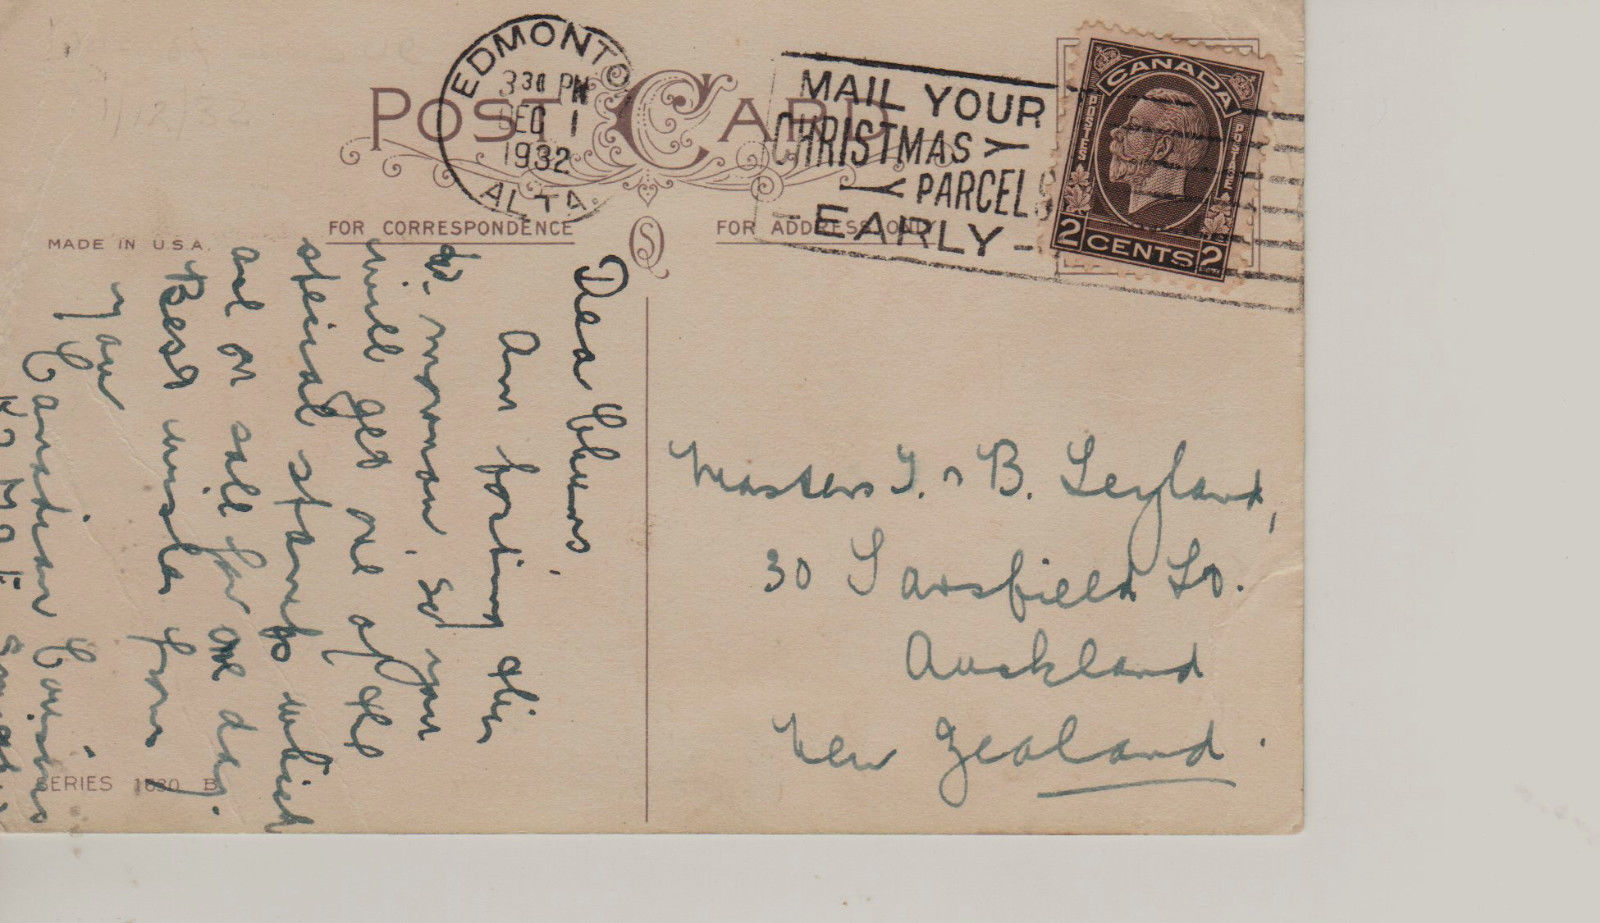 EDMONTON
3 30 PM
DEC 1
1932
ALTA.
MAIL YOUR
CHRISTMAS
PARCELS
EARLY
CANADA
POSTES
POSTAGE
2 CENTS 2
POST CARD
1/12/32
FOR CORRESPONDENCE
FOR ADDRESS ONLY
MADE IN U.S.A.
Dear Chums.
Am posting this
to. morrow, so you
will get one of the
special stamps which
are on sale for one day.
Best wishes from
your
Canadian Cousins
Masters J. & B. Leyland,
30 Sarsfield St.
Auckland
New Zealand.
SERIES 1630 B